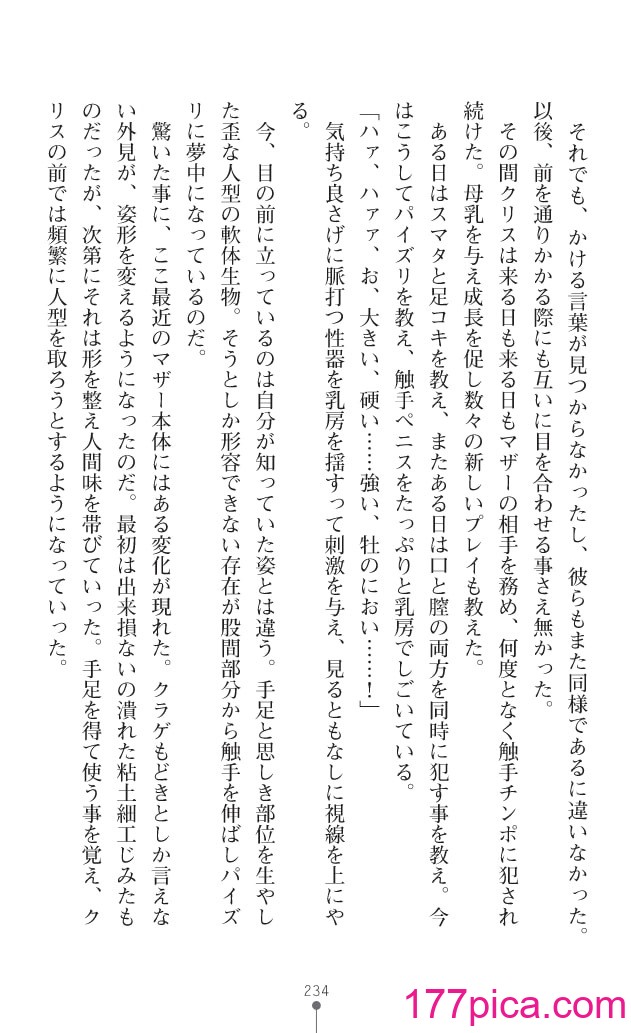 それでも、かける言葉が見つからなかったし、彼らもまた同様であるに違いなかった。
以後、前を通りかかる際にも互いに目を合わせる事さえ無かった。
その間クリスは来る日も来る日もマザーの相手を務め、何度となく触手チンポに犯され
続けた。母乳を与え成長を促し数々の新しいプレイも教えた。
ある日はスマタと足コキを教え、またある日は口と膣の両方を同時に犯す事を教え。今
はこうしてパイズリを教え、触手ペニスをたっぷりと乳房でしごいている。
「ハァ、ハァァ、お、大きい、硬い……強い、牡のにおい……！」
気持ち良さげに脈打つ性器を乳房を揺すって刺激を与え、見るともなしに視線を上にや
る。
今、目の前に立っているのは自分が知っていた姿とは違う。手足と思しき部位を生やし
た歪な人型の軟体生物。そうとしか形容できない存在が股間部分から触手を伸ばしパイズ
リに夢中になっているのだ。
驚いた事に、ここ最近のマザー本体にはある変化が現れた。クラゲもどきとしか言えな
い外見が、姿形を変えるようになったのだ。最初は出来損ないの潰れた粘土細工じみたも
のだったが、次第にそれは形を整え人間味を帯びていった。手足を得て使う事を覚え、ク
リスの前では頻繁に人型を取ろうとするようになっていった。
234
177pica.com